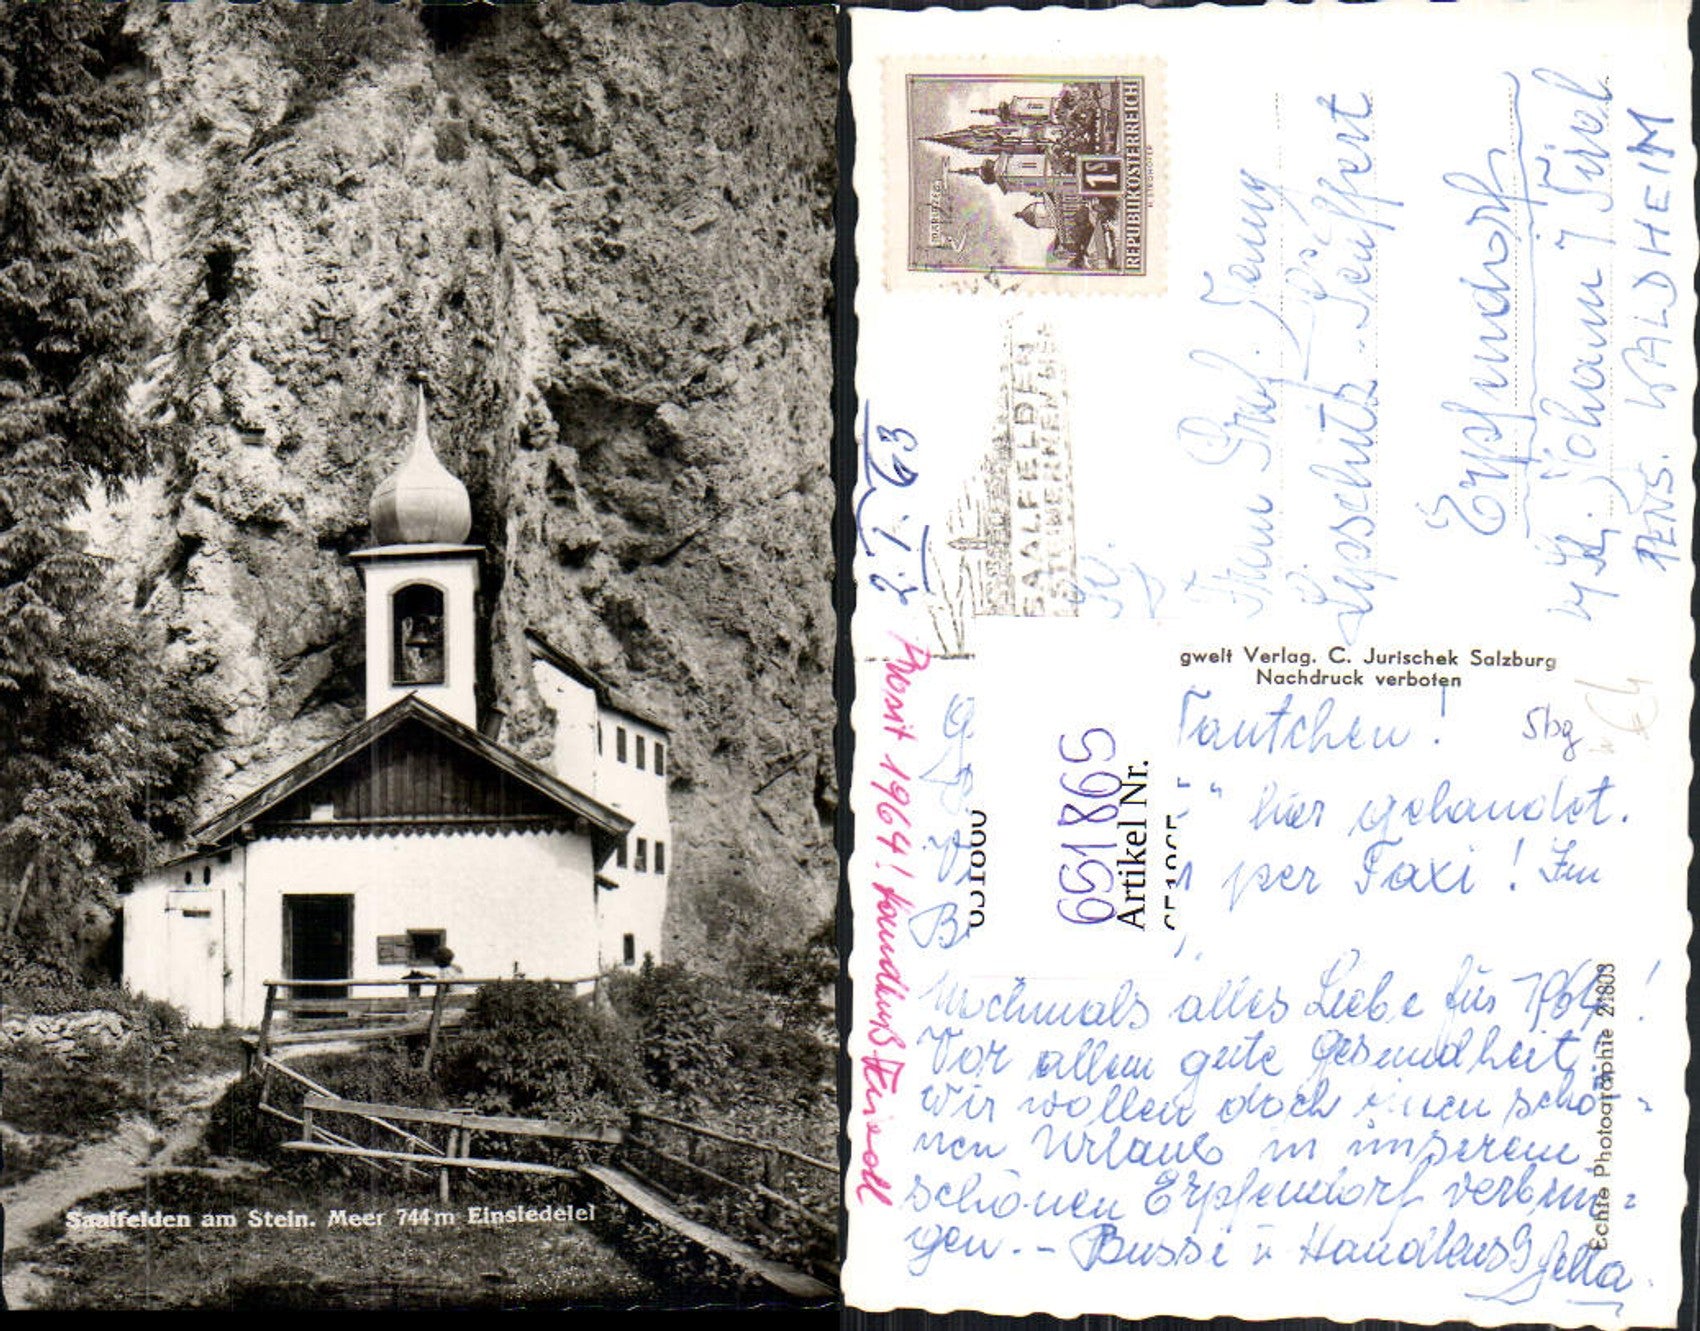 Saalfelden am Stein. Meer 744m Einsiedelei
REPUBLIK ÖSTERREICH
1S
MARIAZELL
SAALFELDEN
2.I.63
Prosit 1964! Handkuß
Frau Prof. Jenny
Lipschütz-Seuffert
Erpfendorf
St. Johann i Tirol
PENS. WALDHEIM
gwelt Verlag. C. Jurischek Salzburg
Nachdruck verboten
Echte Photographie 21803
Sbg
651865
Artikel Nr.
Tantchen!
" hier gelandet.
per Taxi! Im
Nochmals alles Liebe für 1964!
Vor allem gute Gesundheit,
wir wollen doch einen schö-
nen Urlaub in unserem
schönen Erpfendorf verbrin-
gen. - Bussi u Handkuss Jella